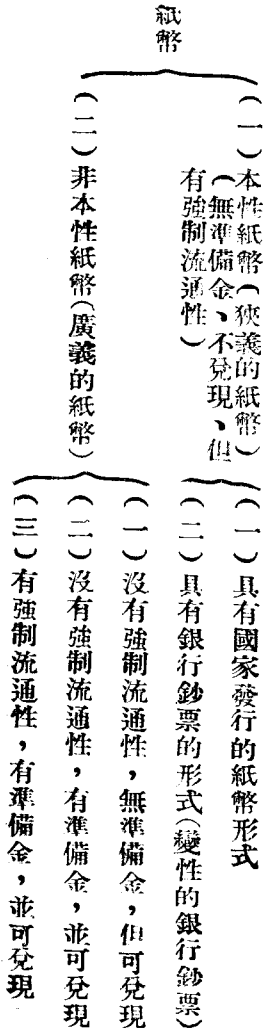 紙幣
（一）本性紙幣（狹義的紙幣）
（無準備金、不兌現、但
有強制流通性）
（一）具有國家發行的紙幣形式
（二）具有銀行鈔票的形式（變性的銀行鈔票）
（二）非本性紙幣（廣義的紙幣）
（一）沒有強制流通性，無準備金，但可兌現
（二）沒有強制流通性，有準備金，並可兌現
（三）有強制流通性，有準備金，並可兌現